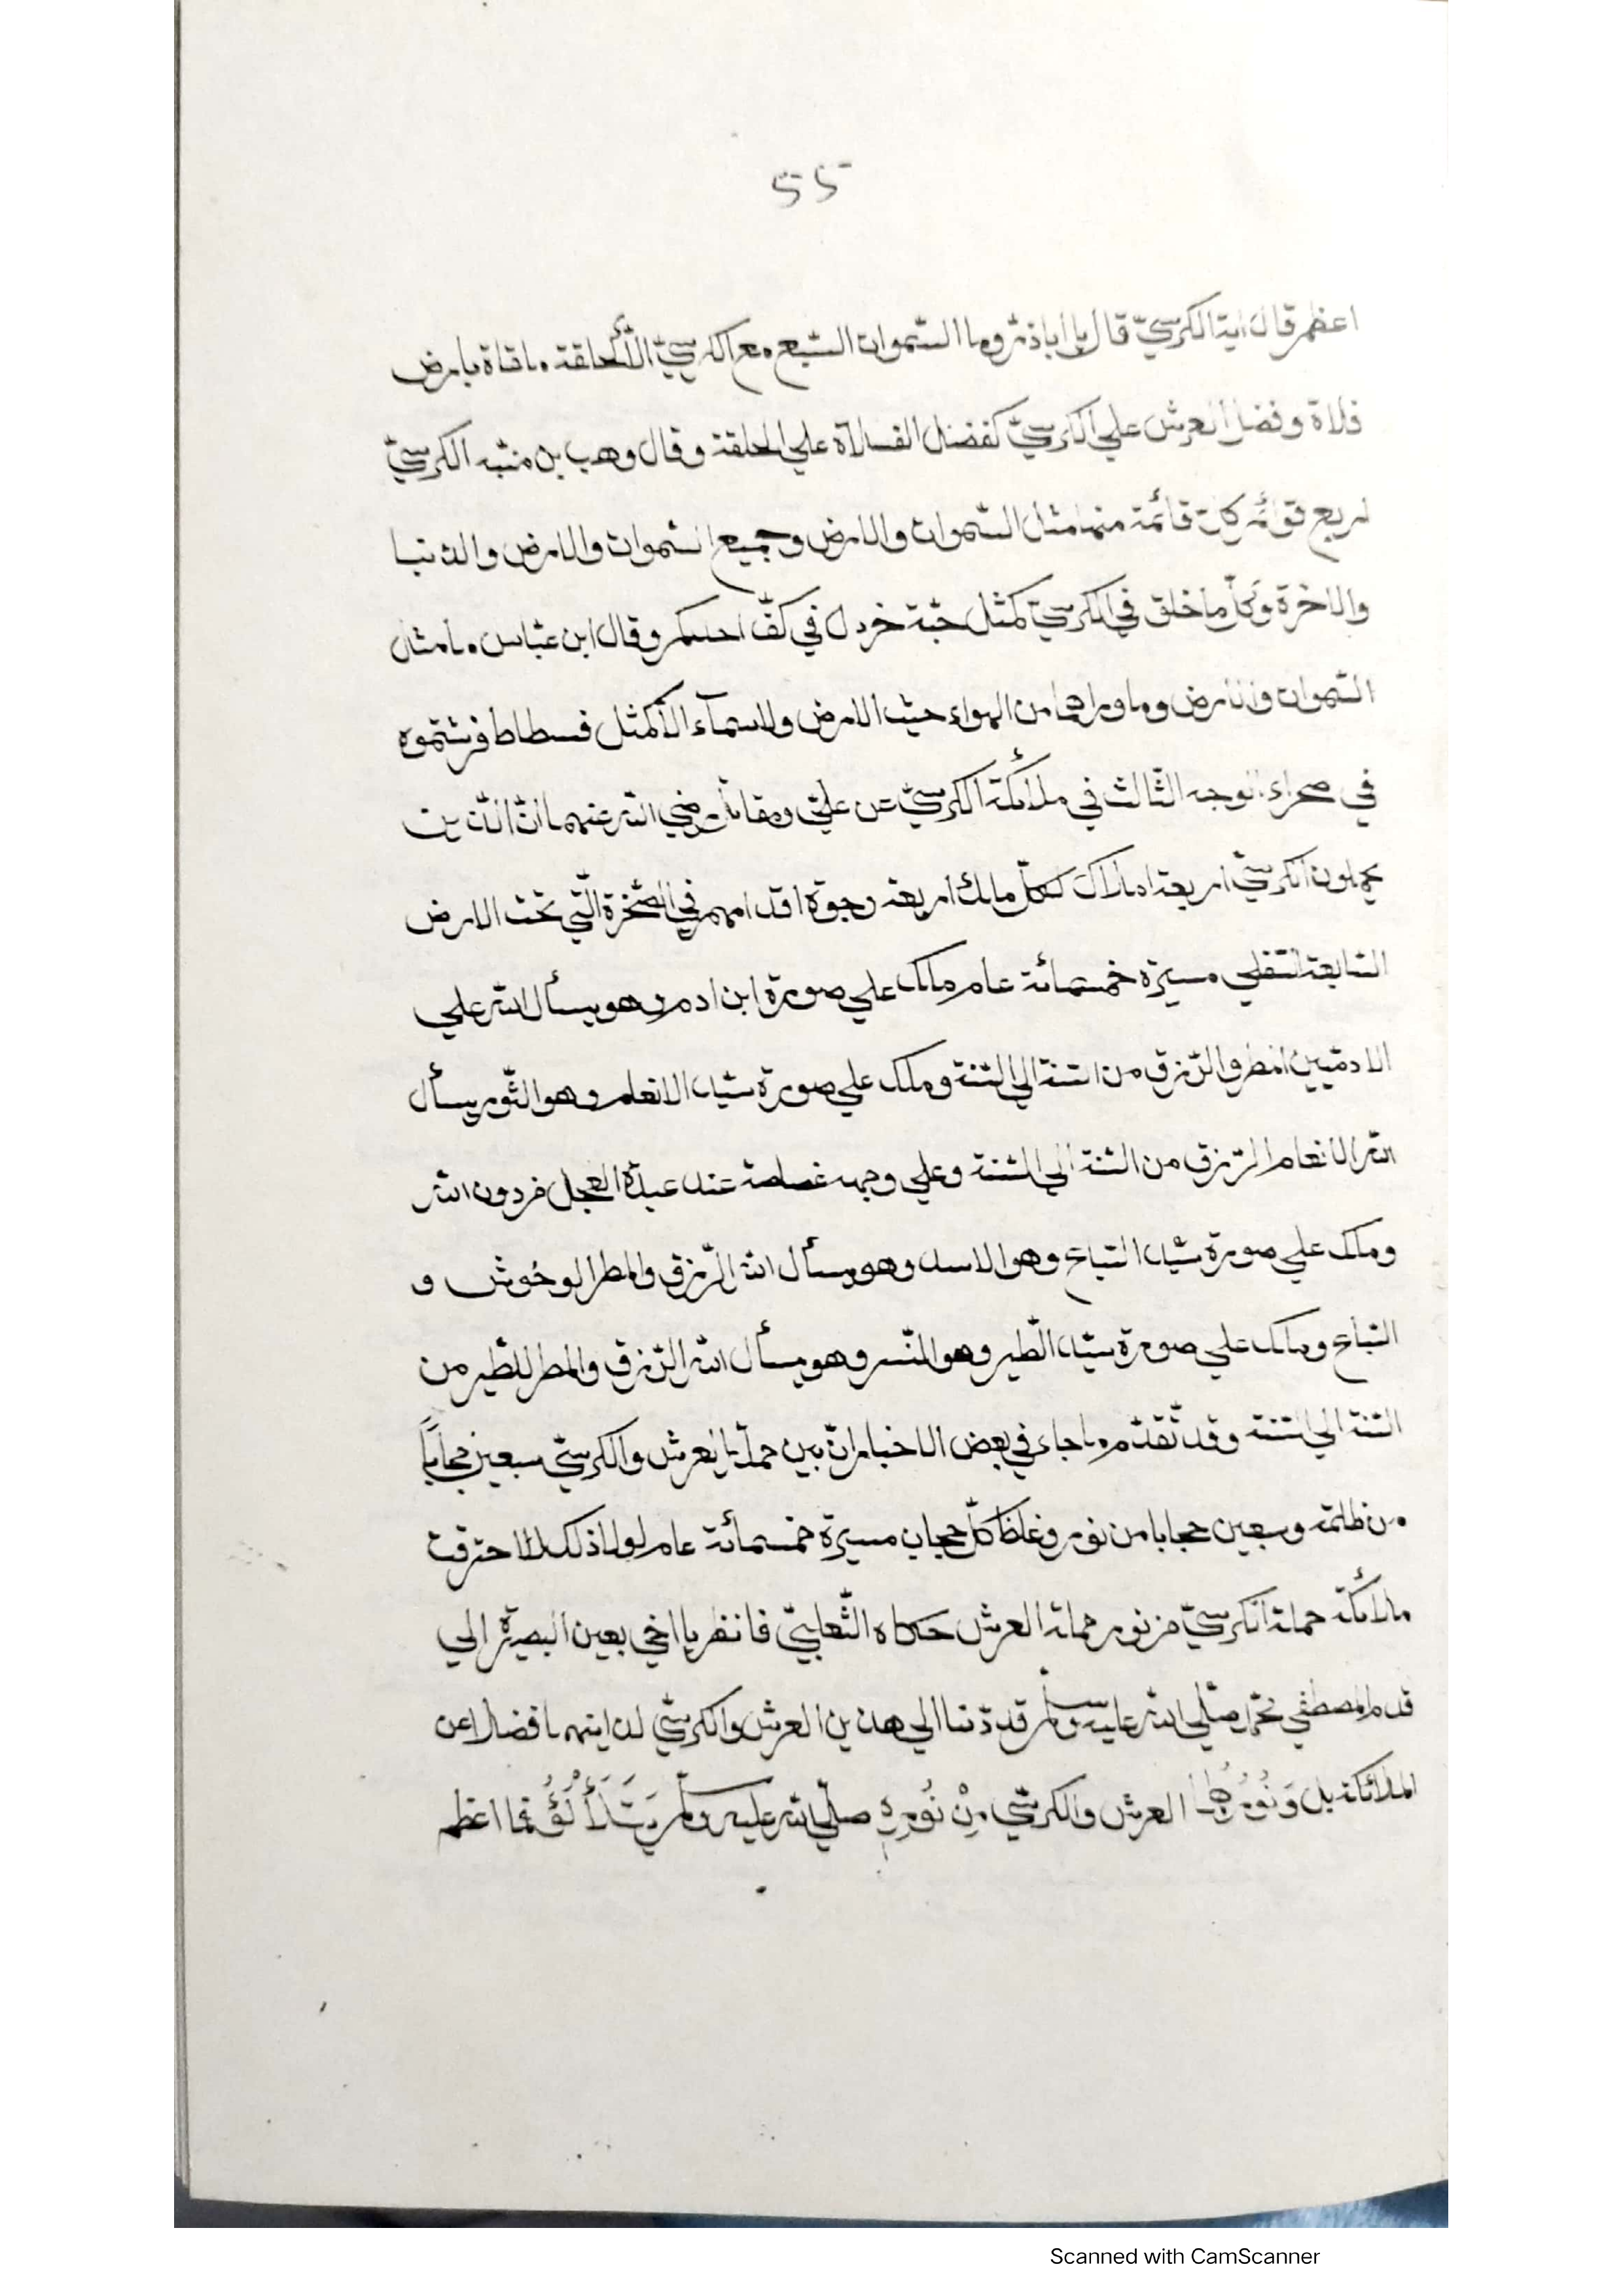 55
اعظم قال اية الكرسيّ قال يا اباذرّ وما السّموات السّبع مع الكرسيّ الّا كحلقة ملقاة بارض
فلاة وفضل العرش علي الكرسيّ كفضل الفلاة علي الحلقة وقال وهب بن منبّه الكرسيّ
اربع قوائم كلّ قائمة منها مثل السّموات والارض وجميع السّموات والارض والدّنيا
والاخرة وكلّ ما خلق في الكرسيّ كمثل حبّة خردل في كفّ احدكم وقال ابن عبّاس ما مثل
السّموات والارض وما وراهما من الهواء حيث الارض ولا سمآء الّا كمثل فسطاط فرشتموه
في صحراء الوجه الثّالث في ملائكة الكرسيّ عن عليّ ومقاتل رضي اللّه عنهما انّ الّذين
يحملون الكرسيّ اربعة املاك لكلّ ملك اربعة وجوه اقدامهم في الصّخرة الّتي تحت الارض
السّابعة السّفلي مسيرة خمسمائة عام ملك علي صورة ابن ادم وهو يسأل اللّه علي
الادميّين المطر والرّزق من السّنة الي السّنة وملك علي صورة سيّد الانعام وهو الثّور يسأل
اللّه الانعام الرّزق من السّنة الي السّنة وعلي وجهه غصاصة عند عبدة العجل من دون اللّه
وملك علي صورة سيّد السّباع وهو الاسد وهو يسأل اللّه الرّزق والمطر الوحُوش و
السّباع وملك علي صورة سيّد الطّير وهو النّسر وهو يسأل اللّه الرّزق والمطر للطّير من
السّنة الي السّنة وقد تّقدّم ما جاء في بعض الاخبار انّ بين حملة العرش والكرسيّ سبعين حجاباً
من ظلمة وسبعين حجابا من نور وغلظ كلّ حجاب مسيرة خمسمائة عام لولا ذلك لاحترقت
ملائكة حملة الكرسيّ من نور حملة العرش حكاه الثّعلبيّ فانظر يا اخي بعين البصيرة الي
قدم المصطفي محمّد صلّي اللّه عليه وسلّم قد دنا الي هذين العرش والكرسيّ لد ايتهما فضلا عن
الملائكة بل وَنُورُهُمَا العرش والكرسيّ مِنْ نُورِهِ صلّي اللّه عليه وسلّم يَتَلَأْلَؤُ فما اعظم
Scanned with CamScanner